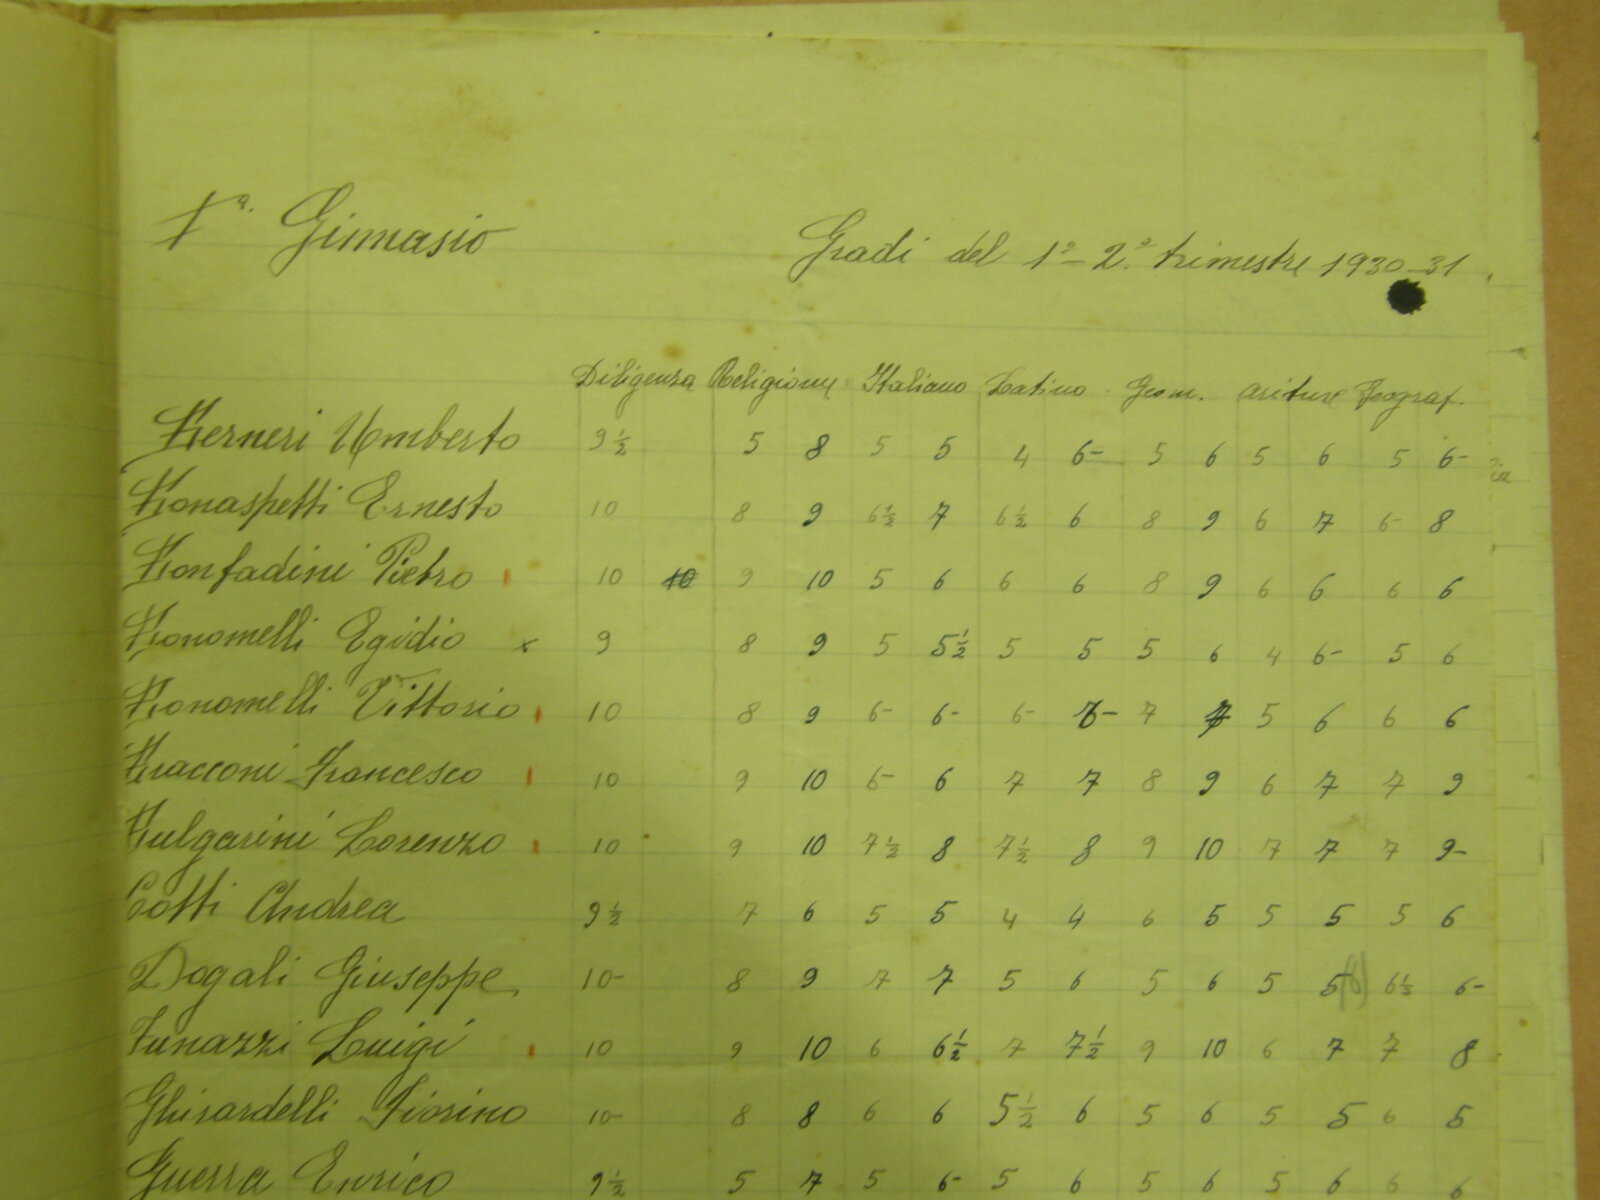 1ª. Ginnasio
Gradi del 1º - 2º. trimestre 1930-31
Diligenza Religione Italiano Latino Geom. aritme Geograf.
Berneri Umberto 9½ 5 8 5 5 4 6- 5 6 5 6 5 6-
Bonaspetti Ernesto 10 8 9 6½ 7 6½ 6 8 9 6 7 6- 8
Bonfadini Pietro 10 10 9 10 5 6 6 6 8 9 6 6 6 6
Bonomelli Egidio x 9 8 9 5 5½ 5 5 5 6 4 6- 5 6
Bonomelli Vittorio 10 8 9 6- 6- 6- 6- 7 7 5 6 6 6
Bracconi Francesco 10 9 10 6- 6 7 7 8 9 6 7 7 9
Bulgarini Lorenzo 10 9 10 7½ 8 7½ 8 9 10 7 7 7 9-
Cotti Andrea 9½ 7 6 5 5 4 4 6 5 5 5 5 6
Dogali Giuseppe 10- 8 9 7 7 5 6 5 6 5 5 (6) 6½ 6-
Funazzi Luigi 10 9 10 6 6½ 7 7½ 9 10 6 7 7 8
Ghirardelli Fiorino 10- 8 8 6 6 5½ 6 5 6 5 5 6 5
Guerra Enrico 9½ 5 7 5 6- 5 6 5 6 5 6 6 6